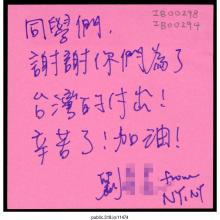 IB00298
IB00294
同學們，
謝謝你們為了
台灣的付出！
辛苦了！加油！
劉
from
NY, NY
public.318.io/11474